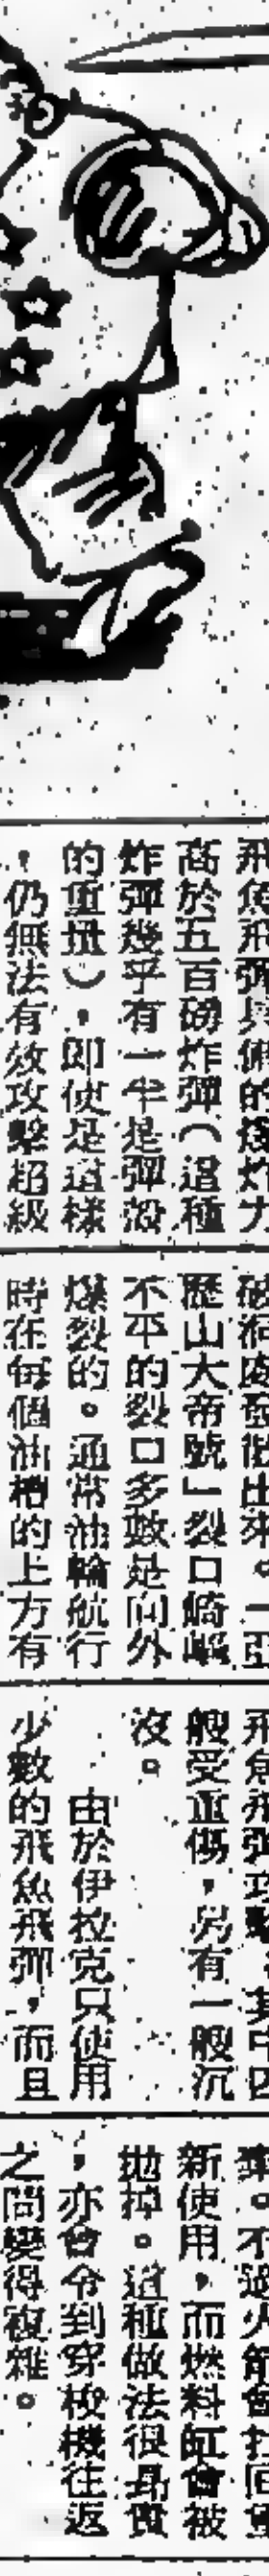 飛魚飛彈具備的爆炸力
高於五百磅炸彈（這種
炸彈幾乎有一半是彈殼
的重量），即使是這樣
，仍無法有效攻擊超級
來。一亞
歷山大帝號」裂口崎嶇
不平的裂口多數是向外
爆裂的。通常油輪航行
時在每個油槽的上方有
飛魚飛彈攻擊，其中四
艘受重傷，另有一艘沉
沒。
由於伊拉克只使用
少數的飛魚飛彈，而且
棄。不過火箭會扛回重
新使用，而燃料缸會被
拋掉。這種做法很昂貴
，亦會令到穿梭機往返
之間變得複雜。